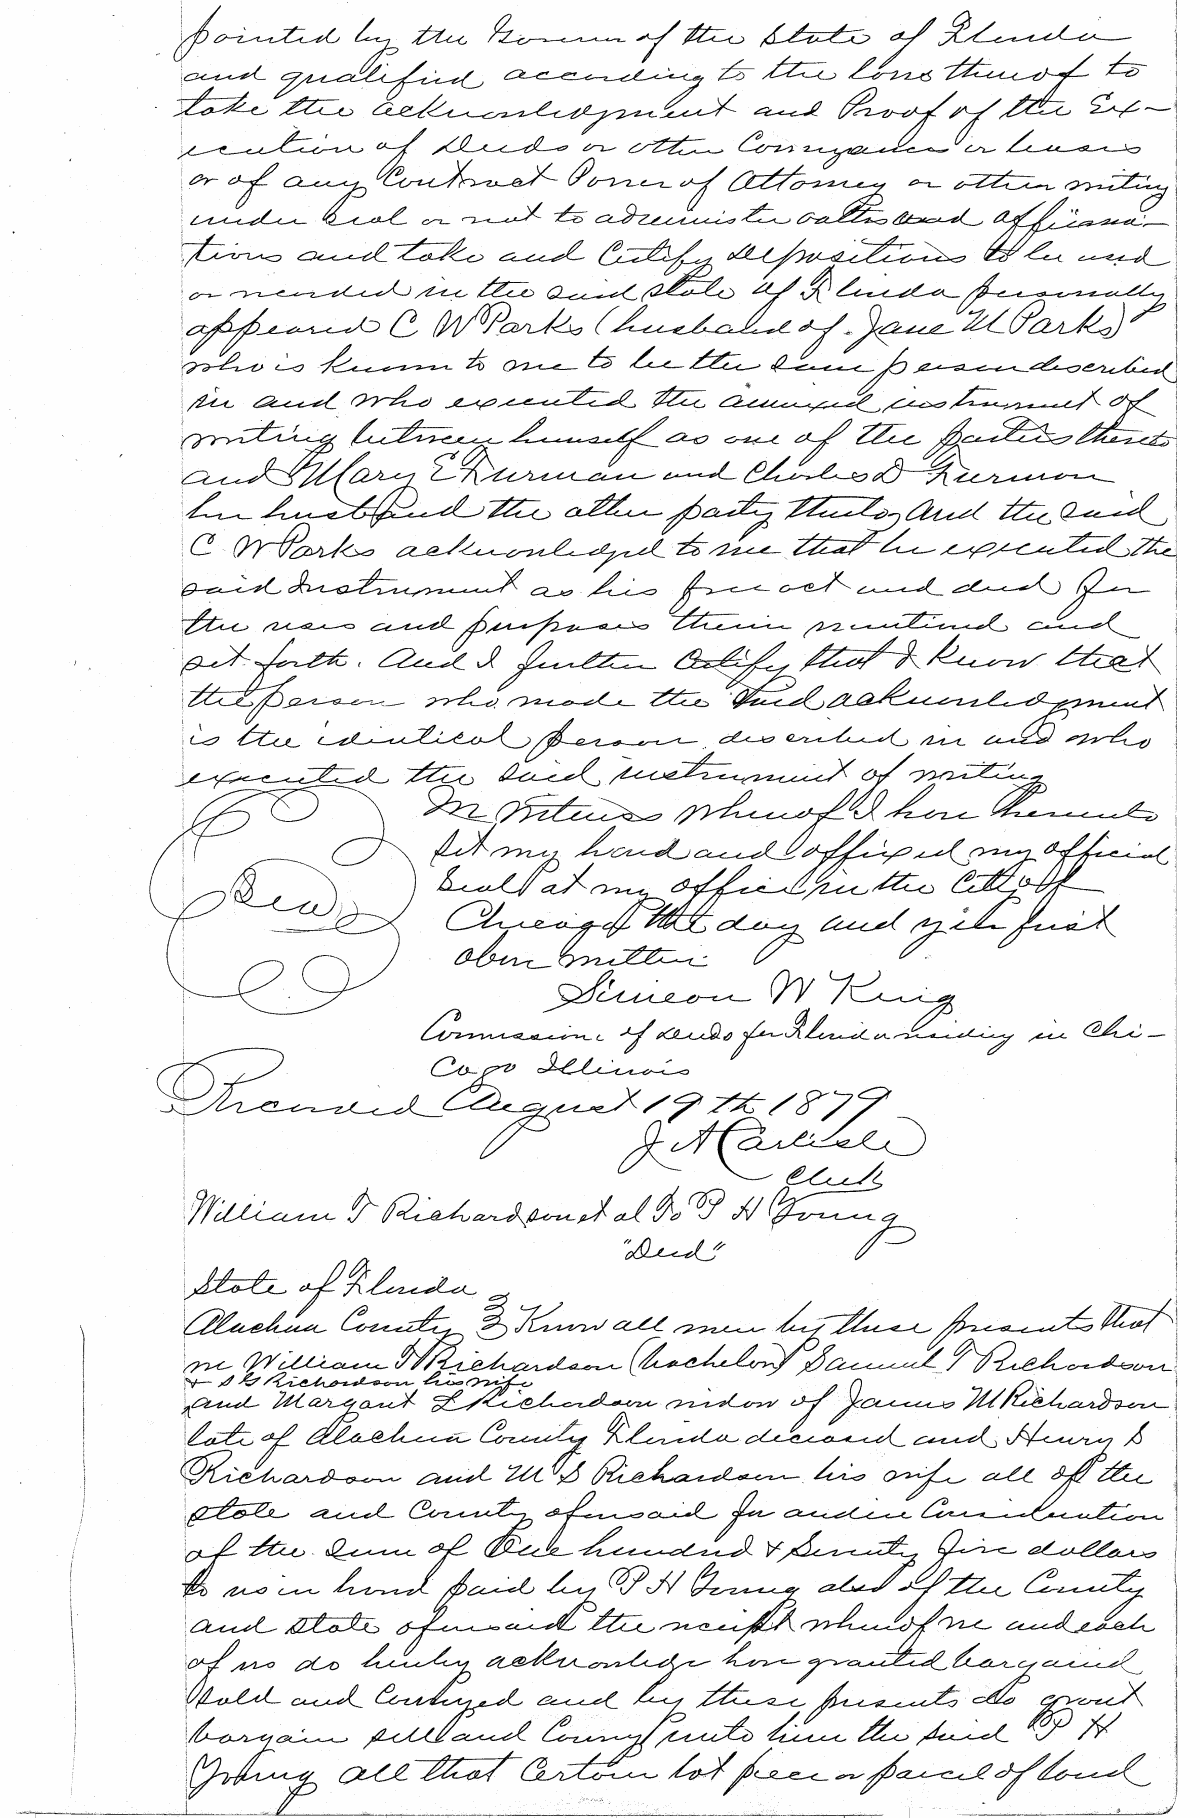 pointed by the Governor of the State of Florida
and qualified according to the laws thereof to
take the acknowledgment and Proof of the Ex-
ecution of Deeds or other Conveyances or leases
or of any Contract Power of Attorney or other writing
under seal or not to administer oaths and affirma-
tions and take and Certify Depositions to be used
or recorded in the said State of Florida personally
appeared C W Parks (husband of Jane M Parks)
who is known to me to be the same person described
in and who executed the annexed instrument of
writing between himself as one of the parties thereto
and Mary E Furman and Charles D Furman
her husband the other party thereto, And the said
C W Parks acknowledged to me that he executed the
said Instrument as his free act and deed for
the uses and purposes therein mentioned and
set forth. And I further Certify that I know that
the person who made the said acknowledgment
is the identical person described in and who
executed the said instrument of writing
In Witness Whereof I have hereunto
set my hand and affixed my official
Seal at my office in the City of
Chicago the day and year first
above written
Seal
Simeon W King
Commissioner of deeds for Florida residing in Chi-
cago Illinois
Recorded August 19th 1879
J A Carlisle
Clerk
William T Richardson et al To P H Young
"Deed"
State of Florida
Alachua County } Know all men by these presents that
we William T Richardson (bachelor) Samuel T Richardson
& S G Richardson his wife
and Margaret L Richardson widow of James M Richardson
late of Alachua County Florida deceased and Henry S
Richardson and M S Richardson his wife all of the
State and County aforesaid for and in Consideration
of the Sum of One hundred & Seventy five dollars
to us in hand paid by P H Young also of the County
and State aforesaid the receipt whereof we and each
of us do hereby acknowledge have granted bargained
Sold and Conveyed and by these presents do grant
bargain sell and Convey unto him the said P H
Young all that Certain lot piece or parcel of land